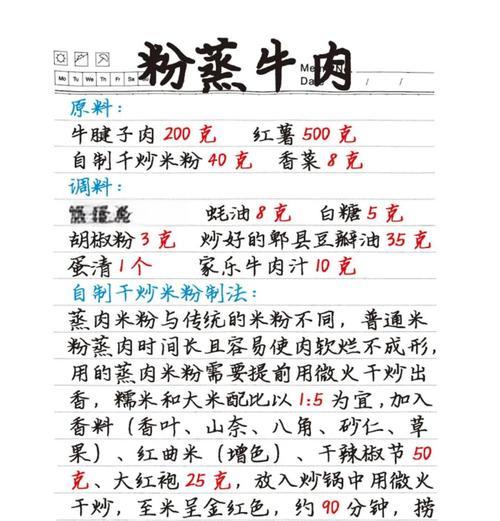 粉蒸牛肉
Mo Tu We Th Fr Sa Su
Memo No.
Da / /
原料:
牛腱子肉 200 克 红薯 500 克
自制干炒米粉 40 克 香菜 8 克
调料:
蚝油 8 克 白糖 5 克
胡椒粉 3 克 炒好的郫县豆瓣油 35 克
蛋清 1 个 家乐牛肉汁 10 克
自制干炒米粉制法:
蒸肉米粉与传统的米粉不同，普通米
粉蒸肉时间长且容易使肉软烂不成形，
用的蒸肉米粉需要提前用微火干炒出
香，糯米和大米配比以 1:5 为宜，加入
香料（香叶、山奈、八角、砂仁、草
果）、红曲米（增色）、干辣椒节 50
克、大红袍 25 克，放入炒锅中用微火
干炒，至米呈金红色，约 90 分钟，捞